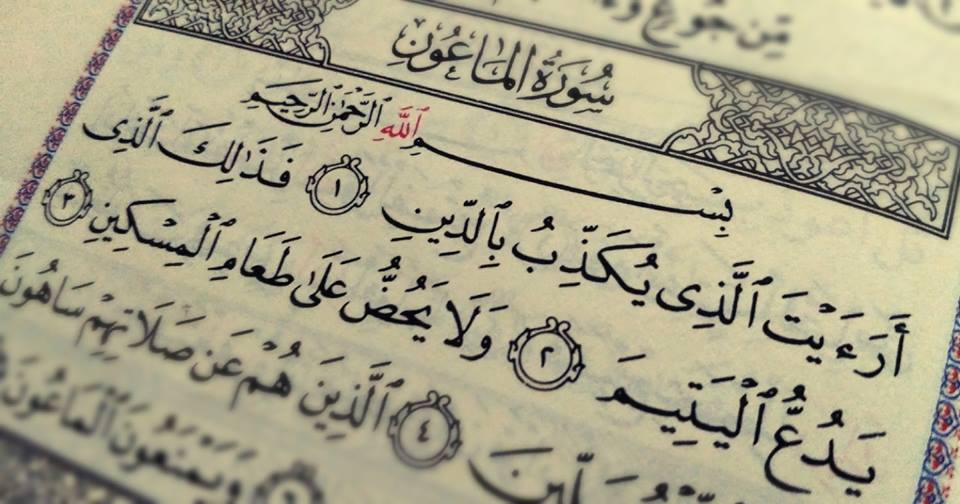 مِّن جُوعٍ
سُورَةُ الْمَاعُونِ
بِسْمِ ٱللَّهِ ٱلرَّحْمَٰنِ ٱلرَّحِيمِ
أَرَءَيْتَ ٱلَّذِى يُكَذِّبُ بِٱلدِّينِ ١ فَذَٰلِكَ ٱلَّذِى
يَدُعُّ ٱلْيَتِيمَ ٢ وَلَا يَحُضُّ عَلَىٰ طَعَامِ ٱلْمِسْكِينِ ٣
٤ ٱلَّذِينَ هُمْ عَن صَلَاتِهِمْ سَاهُونَ
وَيَمْنَعُونَ ٱلْمَاعُونَ